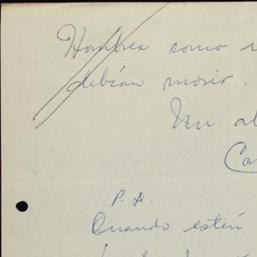 Hombres como
debían morir.
Un
P.D.
Cuando estén